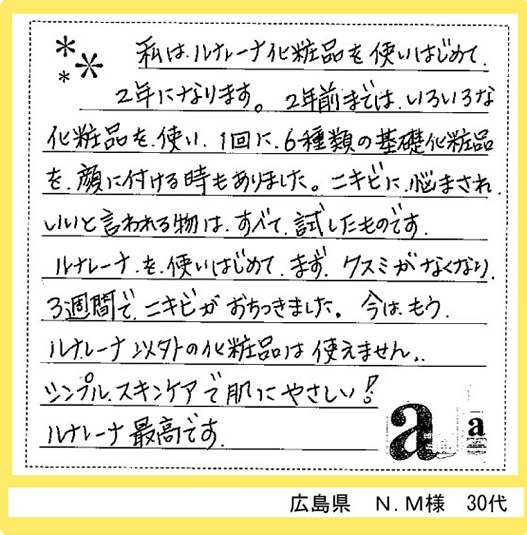 私は、ルナレーナ化粧品を使いはじめて、
2年になります。2年前までは、いろいろな
化粧品を、使い、1回に、6種類の基礎化粧品
を、顔に付ける時もありました。ニキビに、悩まされ、
いいと言われる物は、すべて、試したものです。
ルナレーナを、使いはじめて、まず、クスミがなくなり、
3週間で、ニキビがおちつきました。今は、もう、
ルナレーナ以外の化粧品は使えません。
シンプル、スキンケアで肌にやさしい!
ルナレーナ最高です。
a
a
広島県 N.M様 30代